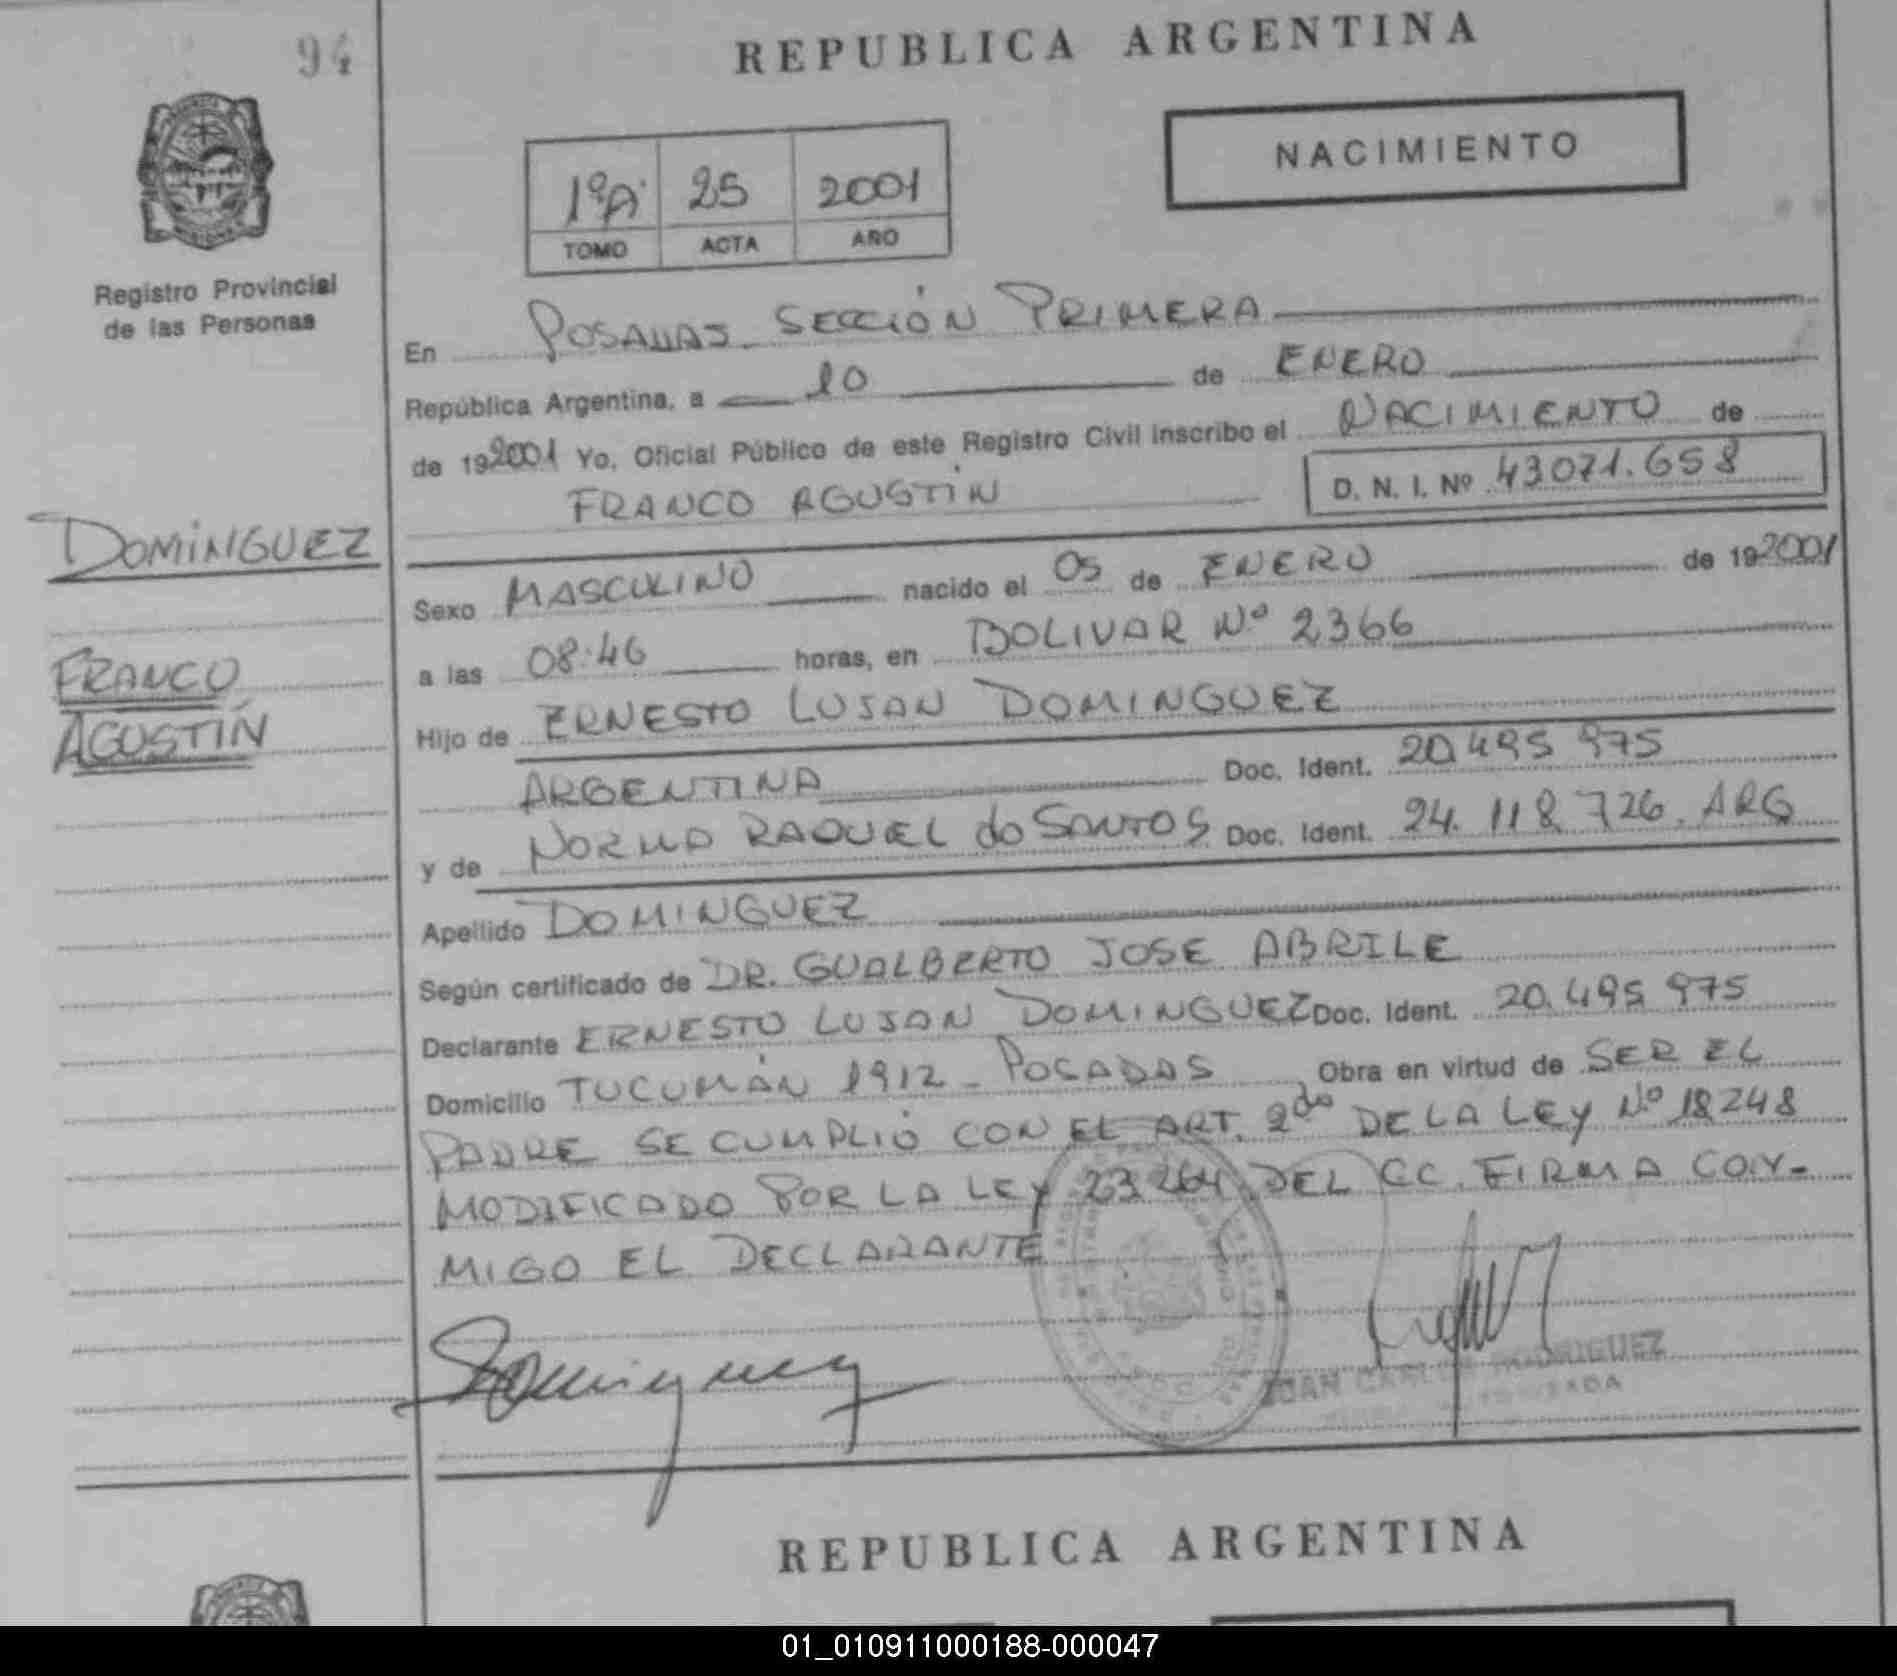 94
REPUBLICA ARGENTINA
NACIMIENTO
1ºA 25 2001
TOMO ACTA AÑO
Registro Provincial
de las Personas
En POSADAS SECCIÓN PRIMERA
República Argentina, a 10 de ENERO
de 192001 Yo, Oficial Público de este Registro Civil inscribo el NACIMIENTO de
FRANCO AGUSTÍN D. N. I. Nº 43.071.658
DOMINGUEZ
FRANCO
AGUSTÍN
Sexo MASCULINO nacido el 05 de ENERO de 192001
a las 08:46 horas, en BOLIVAR Nº 2366
Hijo de ERNESTO LUJAN DOMINGUEZ
ARGENTINA Doc. Ident. 20.495 975
y de NORMA RAQUEL do SANTOS Doc. Ident. 24.118 726. ARG
Apellido DOMINGUEZ
Según certificado de DR. GUALBERTO JOSE ABRILE
Declarante ERNESTO LUJAN DOMINGUEZ Doc. Ident. 20.495 975
Domicilio TUCUMÁN 1912 - POSADAS Obra en virtud de SER EL
PADRE SE CUMPLIÓ CON EL ART. 2do DE LA LEY Nº 18248
MODIFICADO POR LA LEY 23264 DEL CC. FIRMA CON-
MIGO EL DECLARANTE
Dominguez
JUAN CARLOS RODRIGUEZ
REPUBLICA ARGENTINA
01_010911000188-000047